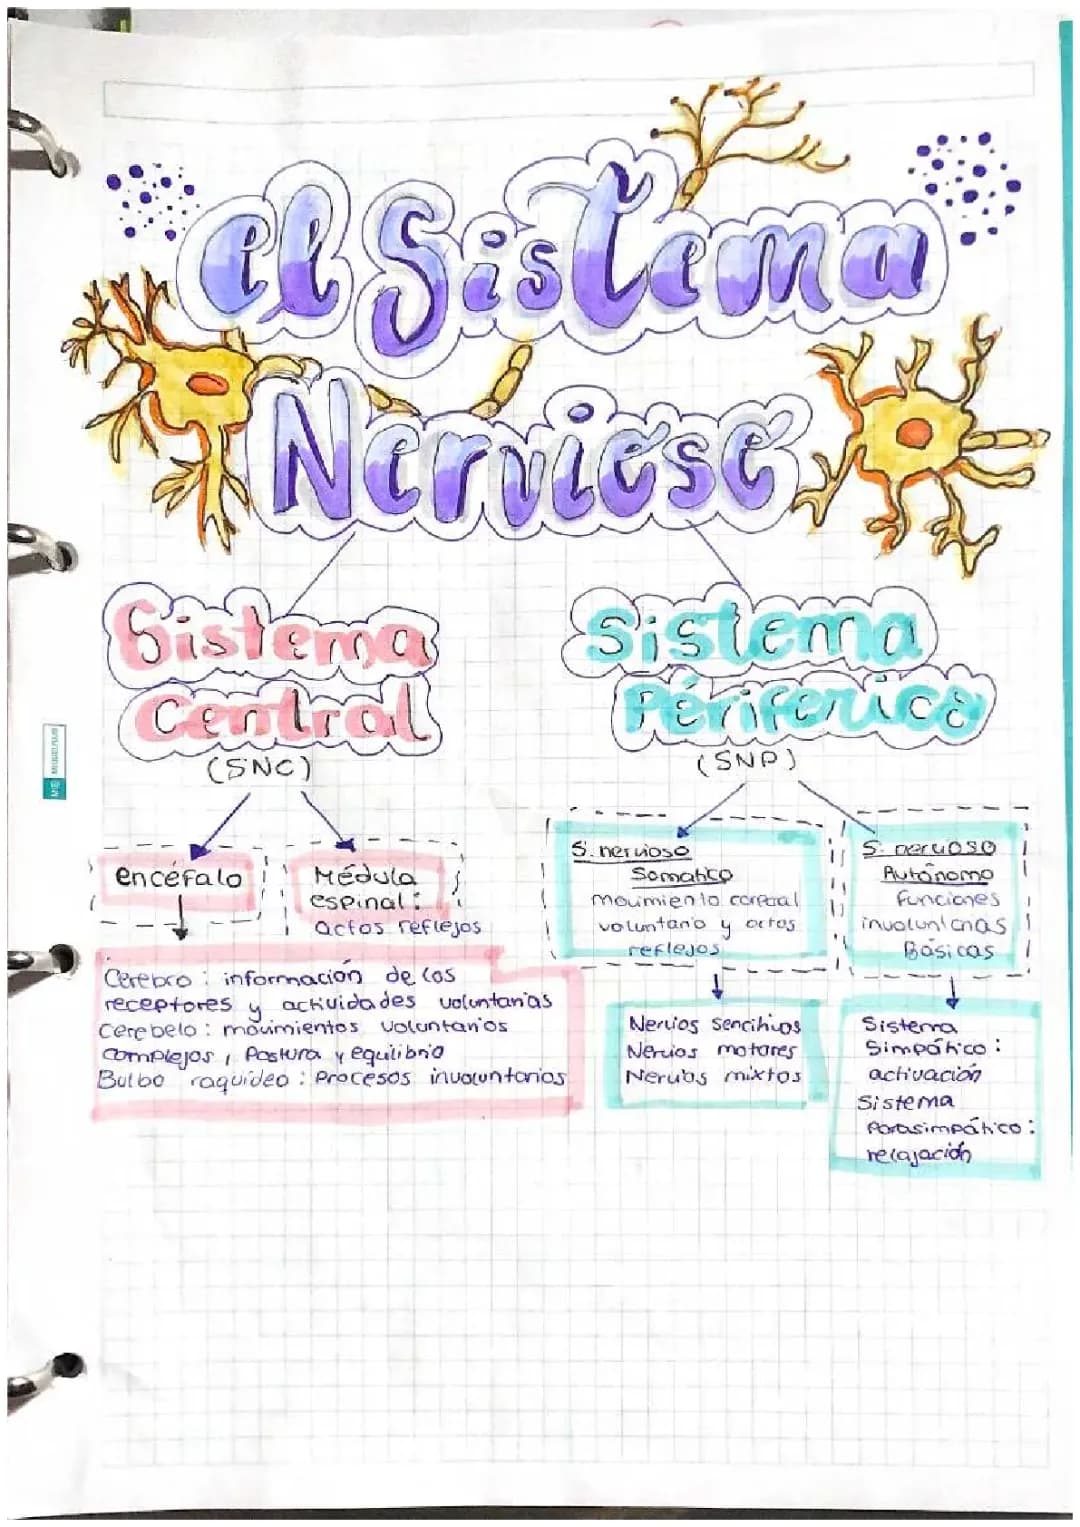 el Sistema
Nervioso
Sistema
Central
(SNC)
encéfalo
Médula
espinal:
actos reflejos
Cerebro: información de los
receptores y actividades voluntarias
Cerebelo: movimientos voluntarios
complejos, Postura y equilibrio
Bulbo raquídeo: Procesos involuntarios
Sistema
Périferico
(SNP)
S. nervioso
Somatico
movimiento corporal
voluntario y actos
reflejos
Nervios sencitivos
Nervios motores
Nervios mixtos
S. nervioso
Autónomo
funciones
involuntarias
Básicas
Sistema
Simpático:
activación
Sistema
Parasimpático:
relajación